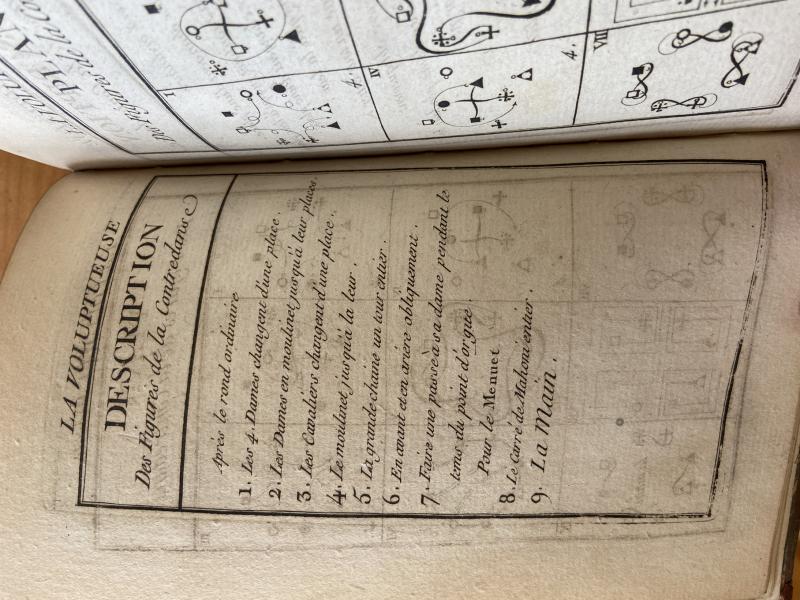 LA VOLUPTUEUSE
DESCRIPTION
Des Figures de la Contredanse
Après le rond ordinaire
1. Les 4. Dames changent d'une place.
2. Les Dames en moulinet jusqu'à leur places.
3. Les Cavaliers changent d'une place.
4. Le moulinet jusqu'à la leur.
5. La grande chaine un tour entier.
6. En avant et en ariere obliquement.
7. Faire une passe à sa dame pendant le
tems du point d'orgue.
Pour le Menuet
8. Le Carré de Mahoni entier.
9. La main.
PLAN
Des Figures de la Co
I
4.
IV
4.
VII